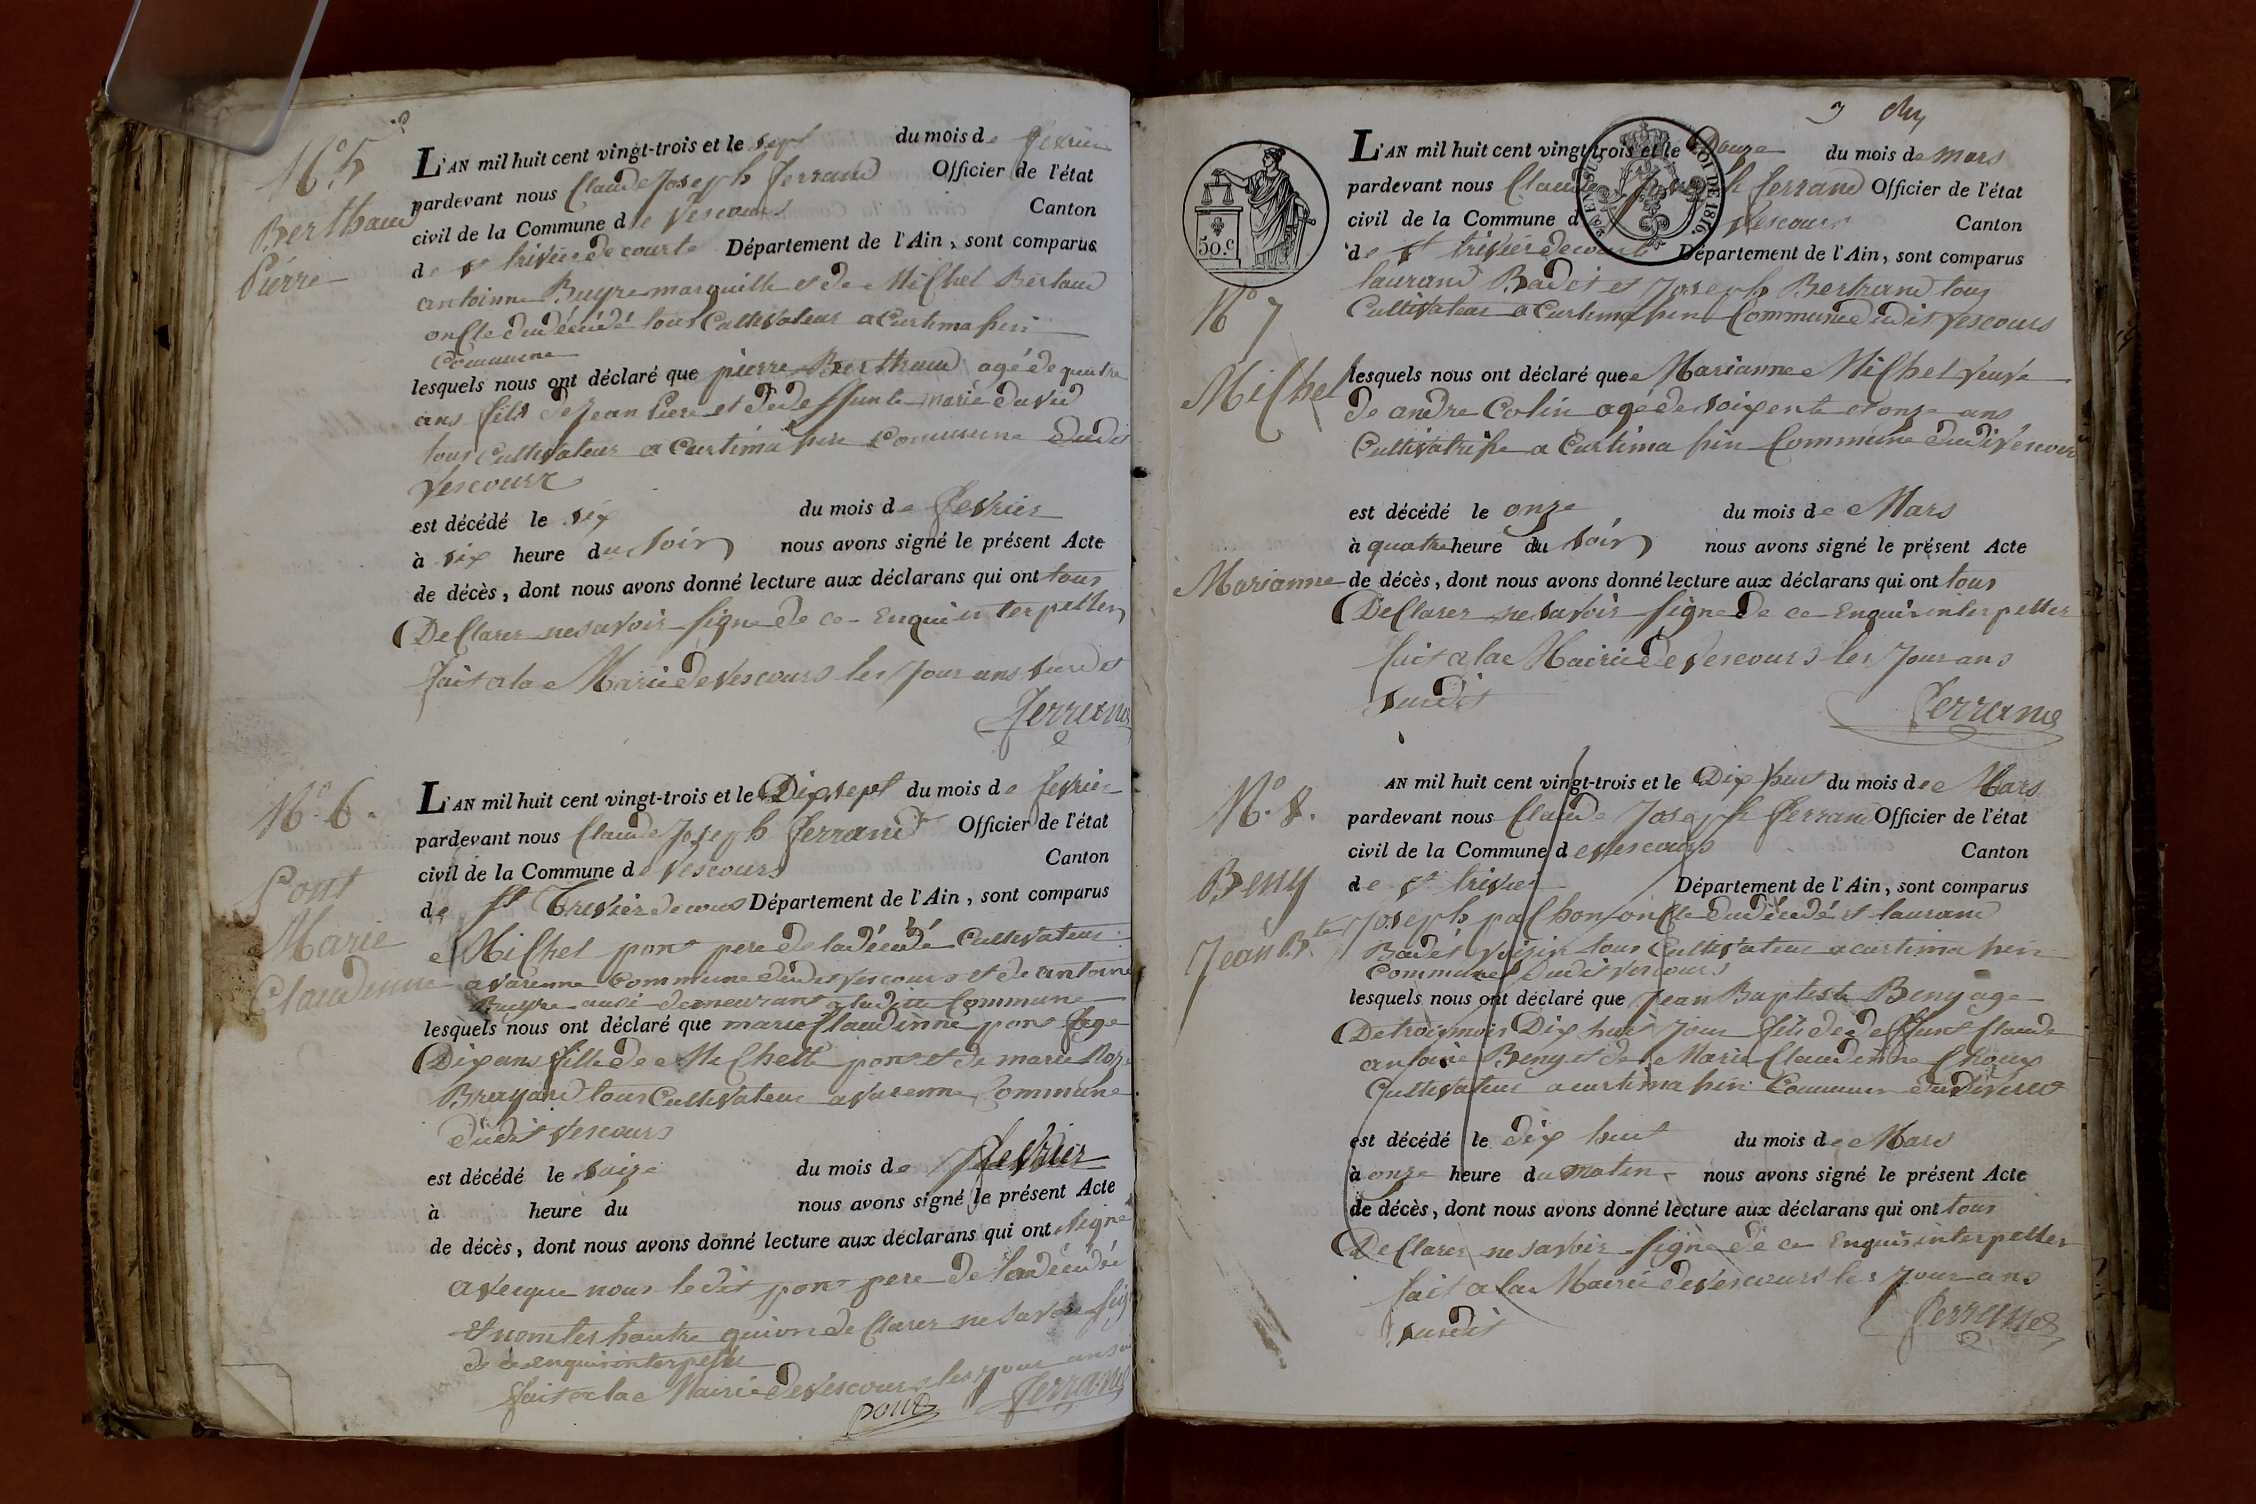 N.° 5
Berthaud
Pierre
L'AN mil huit cent vingt-trois et le sept du mois de fevrier
pardevant nous Claude Joseph ferrand Officier de l'état
civil de la Commune de Vescours Canton
de st trivier de courte Département de l'Ain, sont comparus
antoinne Buyre marguille et de Michel Bertaud
oncle dudécédé tous Cultivateur a Curtima
Commune
lesquels nous ont déclaré que pierre Berthaud agé de quatre
ans fils de Jean Piere et de deffunte marie david
tous Cultivateur a Curtima Commune dudit
Vescours
est décédé le six du mois de fevrier
à six heure du soir nous avons signé le présent Acte
de décès, dont nous avons donné lecture aux déclarans qui ont tous
Declarer ne savoir signe de ce Enqui interpeller
fait a la Marie de Vescours les Jour ans susdit
ferrand
N.° 6.
Pont
Marie
Claudinne
L'AN mil huit cent vingt-trois et le Dix sept du mois de fevrier
pardevant nous Claude Joseph ferrand Officier de l'état
civil de la Commune de Vescours Canton
de st Trivier de cours Département de l'Ain, sont comparus
Michel pont pere de ladécédé Cultivateur
a Varenne Commune dudit Vescours et de antoine
Buyre ausi demeurant a ladite Commune
lesquels nous ont déclaré que marie Claudinne pont age
Dix ans fille de Michelle pont et de marie Roze
Brayard tous Cultivateur a Varenne Commune
dudit Vescours
est décédé le saize du mois de fevrier
à heure du nous avons signé le présent Acte
de décès, dont nous avons donné lecture aux déclarans qui ont signe
avecque nous ledit pont pere de ladécédé
et nom les hautre qui on declarer ne savoir sig
de ce enquis interpelle
fait a la Mairie de Vescours les jour ans
pont ferrand
3
50.c
LOI DE 1816.
N.° 7
Michel
Marianne
L'AN mil huit cent vingt-trois et le Douze du mois de mars
pardevant nous Claude Joseph ferrand Officier de l'état
civil de la Commune d Vescours Canton
de st trivier de courte Département de l'Ain, sont comparus
laurand Badet et Joseph Bertrand tous
Cultivateur a Curtima Commune dudit Vescours
lesquels nous ont déclaré que Marianne Michel veuve
de andre Colin agé de soixente et onze ans
Cultivatrise a Curtima Commune dudi Vescour
est décédé le onze du mois de Mars
à quatre heure du soir nous avons signé le présent Acte
de décès, dont nous avons donné lecture aux déclarans qui ont tous
Declarer ne savoir signe de ce Enquis interpeller
fait a la Mairie de Vescours les Jour ans
susdit
ferrand
N.° 8.
Beny
Jean B.te
AN mil huit cent vingt-trois et le Dix huit du mois de Mars
pardevant nous Claude Joseph ferrand Officier de l'état
civil de la Commune de Vescours Canton
de st trivier Département de l'Ain, sont comparus
Joseph pachon oncle dudécédé et laurand
Badet voisin tous Cultivateur a curtima
Commune dudit Vescours
lesquels nous ont déclaré que Jean Baptiste Beny age
De trois mois Dix huit Jour fils de deffunt Claude
antoine Beny et de Marie Claudinne Choux
Cultivateur a curtima Commune dudi
est décédé le dix huit du mois de Mars
à onze heure du matin nous avons signé le présent Acte
de décès, dont nous avons donné lecture aux déclarans qui ont tous
Declarer ne savoir signe de ce Enquis interpeller
fait a la Mairie de Vescours les Jour ans
susdit
ferrand